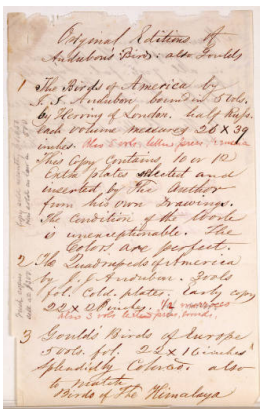 Original Editions of
Audubon's Birds: also Gould's
1 The Birds of America by
J. J. Audubon bound in 5 vols.
by Herring of London. half Russ.
Each volume measures 26 x 39
inches. Also 5 vols. letter press,
This Copy Contains 10 or 12
Extra plates selected and
inserted by The Author
from his own Drawings.
The Condition of the Work
is unexceptionable. The
Colors are perfect.
2 The Quadrapeds of America
by J. J. Audubon. 3 vols
fol. Cold. plates. Early copy
22 x 28 inches. 1/2 morocco
also 3 vols letter press, bound.
3 Gould's Birds of Europe
5 vols. fol. 22 x 16 inches
Splendidly Colored. also
to match
Birds of The Himalaya